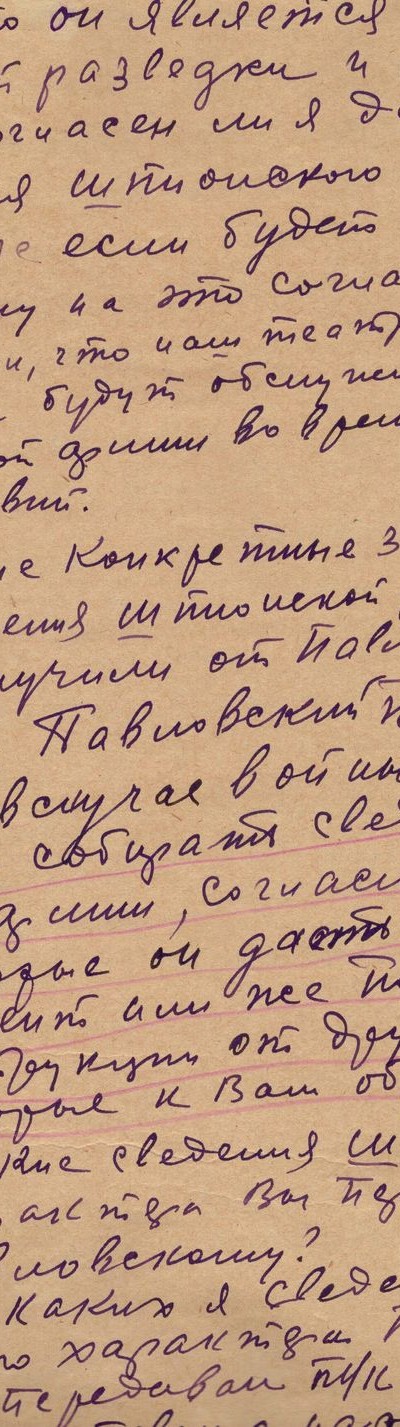 то он является
й разведки и
огласен ли я д
ия шпионского
если будет
му на это согла
и, что наш театр
будут обслужи
ой армии во врем
вий.
ие конкретные з
ения шпионской
лучили от Павл
Павловский
в случае войны
собирать све
армии, согласн
орые он дасть
ент или же п
трукции от дру
орые к Вам об
кие сведения ш
актера Вы пер
вловскому?
каких я сведе
го характера
передавал